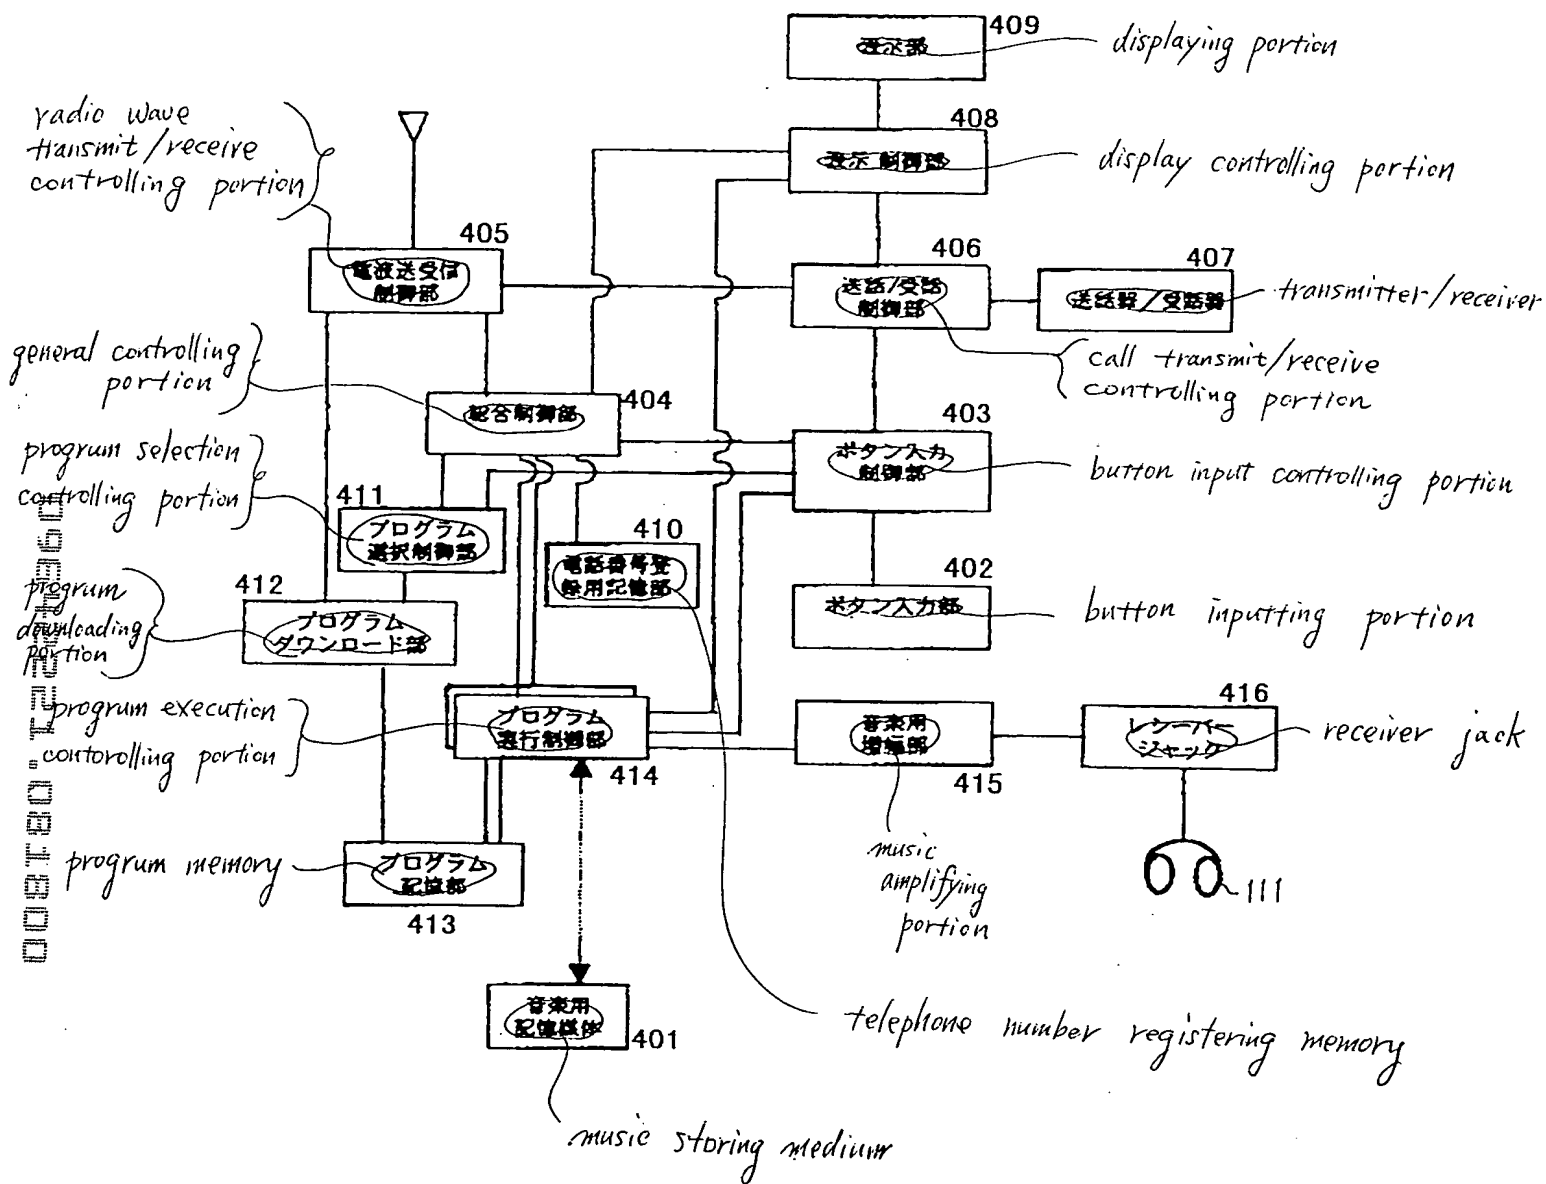 409
表示部
displaying portion
radio wave
transmit/receive
controlling portion
408
表示 制御部
display controlling portion
405
電波送受信
制御部
406
送話/受話
制御部
407
送話器/受話器
transmitter/receiver
call transmit/receive
controlling portion
general controlling
portion
総合制御部
404
403
ボタン入力
制御部
button input controlling portion
progrum selection
controlling portion
411
プログラム
選択制御部
410
電話番号登
録用記憶部
402
ボタン入力部
button inputting portion
412
progrum
downloading
portion
プログラム
ダウンロード部
progrum execution
contorolling portion
プログラム
実行制御部
414
音楽用
増幅部
415
416
レシーバー
ジャック
receiver jack
music
amplifying
portion
111
progrum memory
プログラム
記憶部
413
音楽用
記憶媒体
401
telephone number registering memory
music storing medium